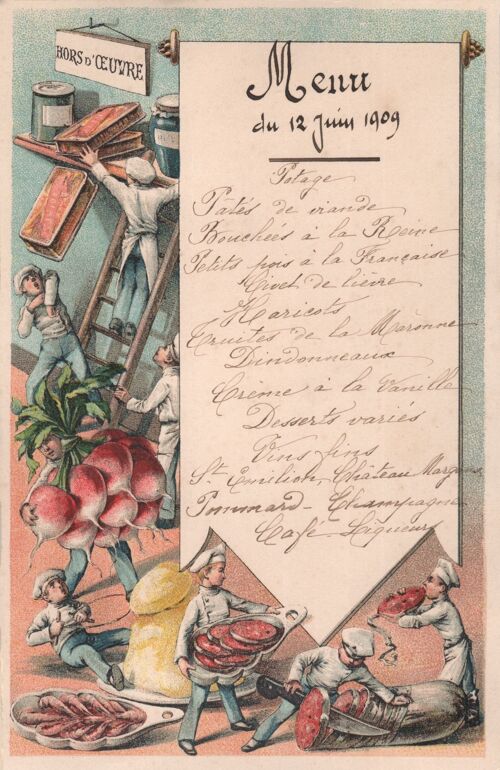 HORS D'ŒUVRE
Menu
du 12 Juin 1909
Potage
Pâtés de viande
Bouchées à la Reine
Petits pois à la Française
Civet de lièvre
Haricots
Truites de la Maronne
Dindonneaux
Crème à la Vanille
Desserts variés
Vins fins
St Emilion, Château Margaux
Pommard - Champagne
Café - Liqueurs